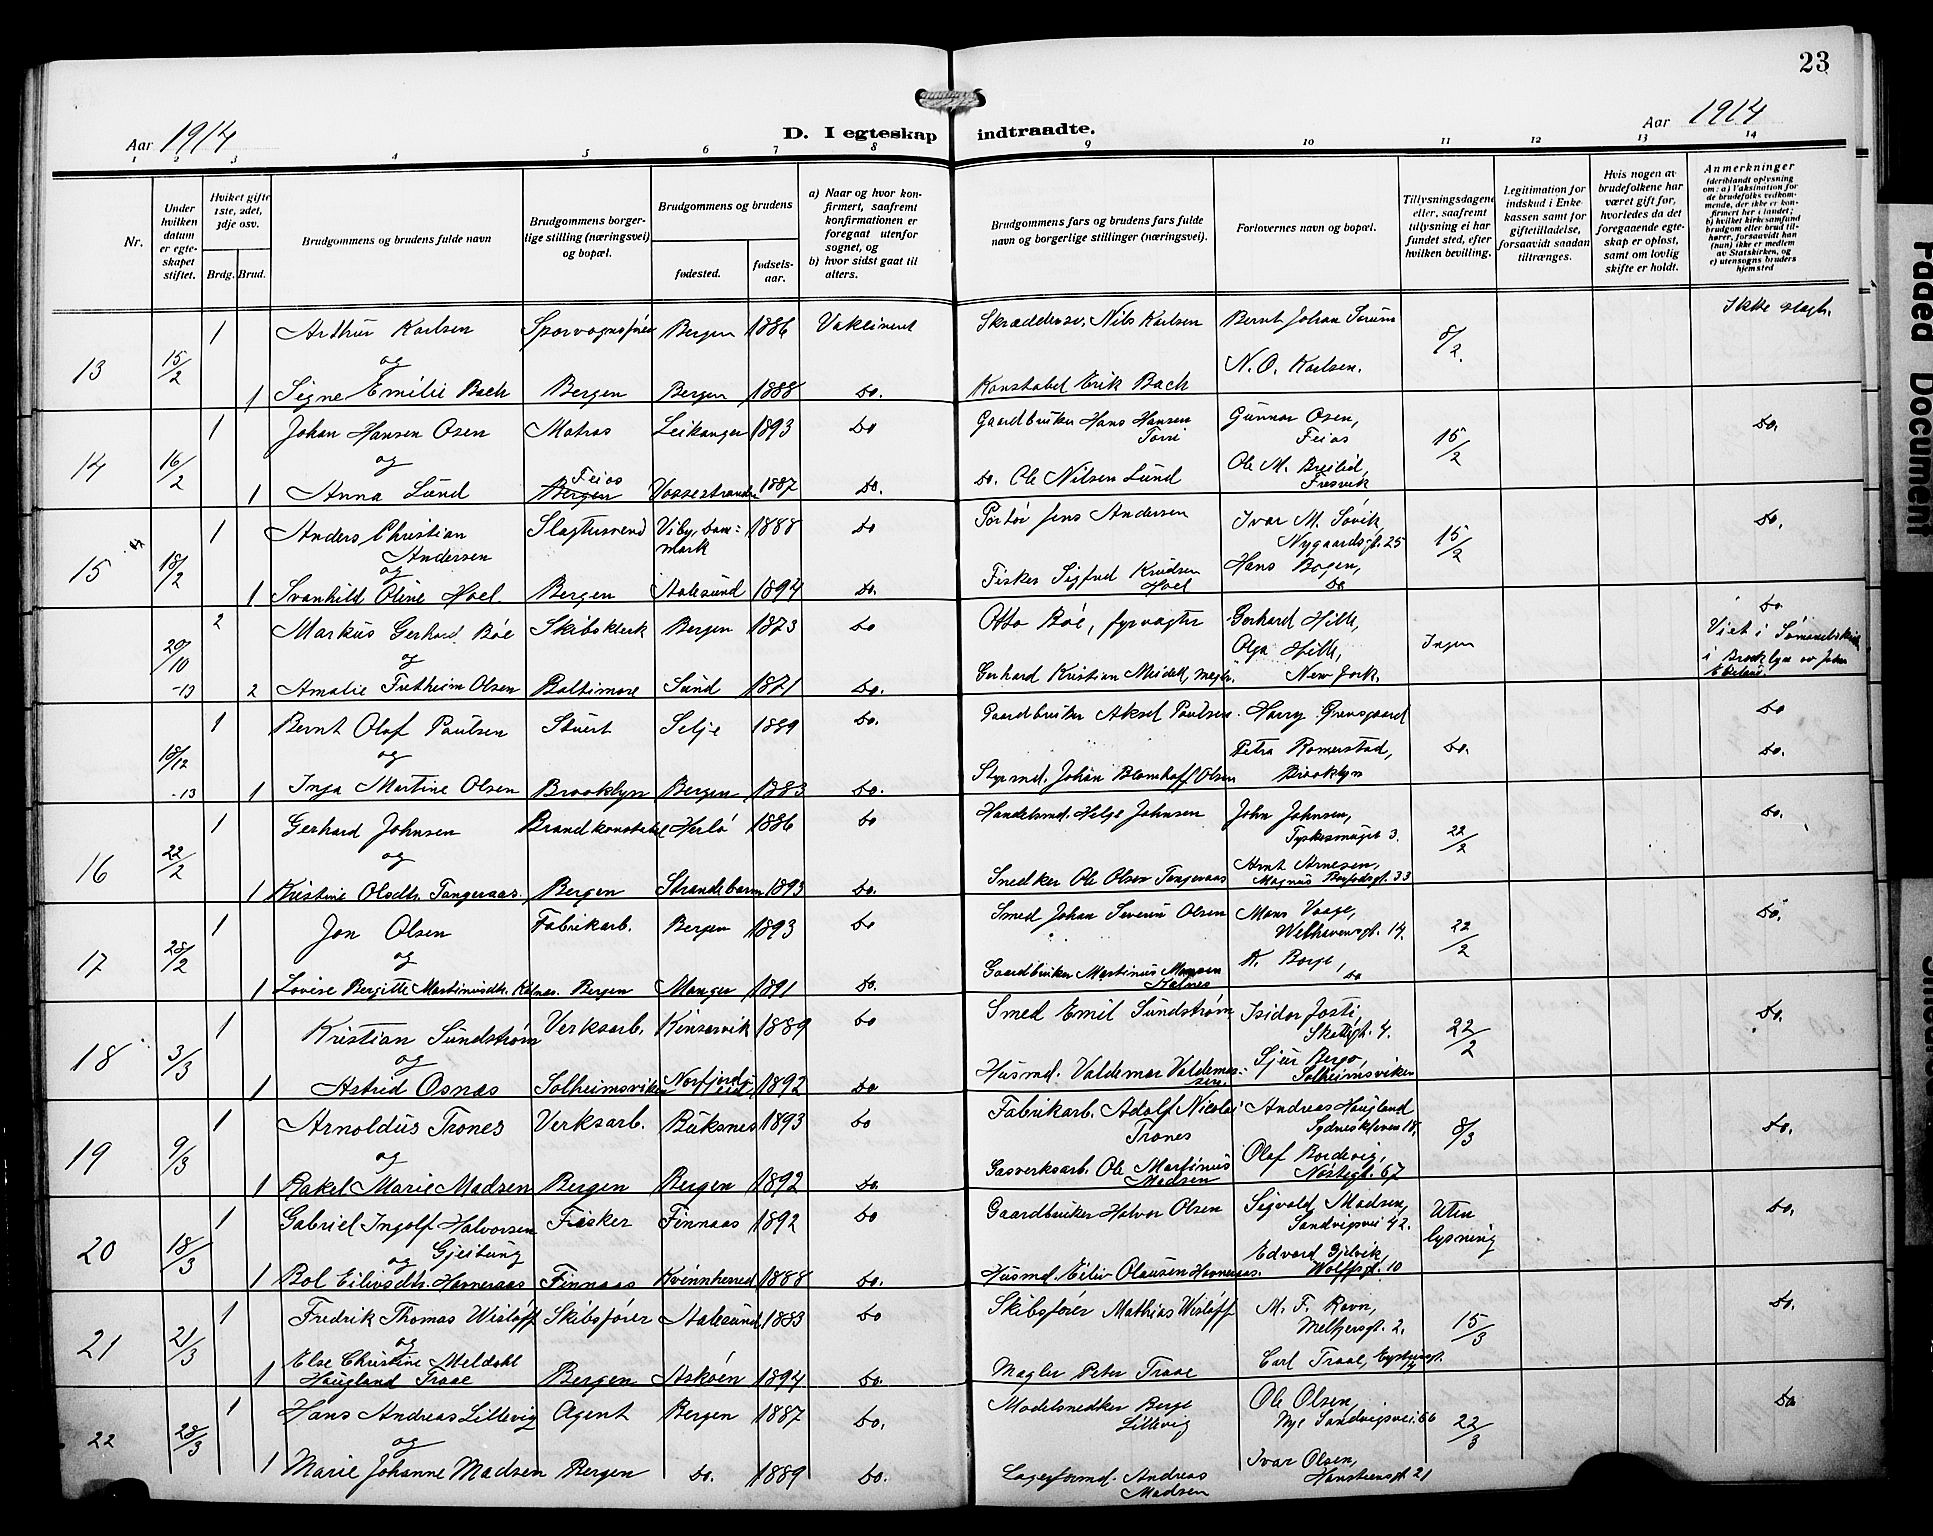 23
Aar 1914
D. I egteskap indtraadte.
Aar 1914
1 2 3 4 5 6 7 8 9 10 11 12 13 14
Nr.
Under hvilken datum er egteskapet stiftet.
Hvilket gifte 1ste, 2det, 3dje osv.
Brdg. Brud.
Brudgommens og brudens fulde navn
Brudgommens borgerlige stilling (næringsvei) og bopæl.
Brudgommens og brudens
fødested.
fødselsaar.
a) Naar og hvor konfirmert, saafremt konfirmationen er foregaat utenfor sognet, og
b) hvor sidst gaat til alters.
Brudgommens fars og brudens fars fulde navn og borgerlige stillinger (næringsvei).
Forlovernes navn og bopæl.
Tillysningsdagene eller, saafremt tillysning ei har fundet sted, efter hvilken bevilling.
Legitimation for indskud i Enkekassen samt for giftetilladelse, forsaavidt saadan tiltrænges.
Hvis nogen av brudefolkene har været gift før, hvorledes da det foregaaende egteskap er opløst, samt om lovlig skifte er holdt.
Anmerkninger (deriblandt oplysning om: a) Vaksination for de brudefolks vedkommende, der ikke er konfirmert her i landet; b) hvilket kirkesamfund brudgom eller brud tilhører, forsaavidt han (hun) ikke er medlem av Statskirken, og c) utensogns bruders hjemsted
13 15/2 1 Arthur Karlsen Bergen 1886 Vaksinert Nils Karlsen Bernt Johan Sørum 8/2 Ikke slegt.
og N. O. Karlsen.
1 Signe Emilie Bach Bergen Bergen 1888 Do. Konstabel Erik Bach
14 16/2 1 Johan Hansen Osen Matros Leikanger 1893 Do Gaardbruker Hans Hansen Gunnar Osen, Feios 15/2 Do.
og Feios
1 Anna Lund Bergen Vossestranden 1887 Do. Do. Ole Nilsen Lund Ole M. Breilid, Fresvik
15 18/2 1 Anders Christian Andersen Slagtersvend Viby, Danmark 1888 Do Jens Andersen Ivar M. Søvik, Nygaardsgt. 25 15/2 Do.
og
1 Svanhild Oline Hoel Bergen Aalesund 1894 Do. Fisker Sigfred Knudsen Hoel Hans Bogen, Do
20/10 -13 2 Markus Gerhard Bøe Skibsklerk Bergen 1873 Do Otto Bøe, fyrvogter Gerhard Hille, Olga Hille, New Jork. Ingen Do
Viet i Sømandskirken i Brooklyn av
og
2 Amalie Fretheim Olsen Baltimore Sund 1871 Do. Gerhard Kristian
18/12 -13 1 Bernt Olaf Paulsen Stuert Selje 1889 Do. Gaardbruker Aksel Paulsen Harry Grensgaard Do. Do
og Petra Romerstad, Brooklyn Do.
1 Inga Martine Olsen Brooklyn Bergen 1883 Do. Styrmd. Johan Blomhoff Olsen
16 22/2 1 Gerhard Johnsen Brandkonstabel Herlø 1886 Do Handelsmd. Helge Johnsen John Johnsen, Tyskesmuget 3. 22/2 Do.
og
1 Kristine Olsdtr. Tangeraas. Bergen Strandebarm 1893 Do. Snedker Ole Olsen Tangeraas Arnt Arnesen, Magnus Barfodsgt. 33
17 28/2 1 Jon Olsen Fabrikarb. Bergen 1893 Do Smed Johan Severin Olsen Mons Vaage, Welhavensgt. 14. 22/2 Do.
og
1 Lovise Bergitte Martinusdtr. Bergen Manger 1891 Do. Gaardbruker Martinus K. Borge, Do
18 3/3 1 Kristian Sundstrøm Verksarb. Kinsarvik 1889 Do Smed Emil Sundstrøm Isidor Josti, 22/2 Do.
og
1 Astrid Osnas Solheimsviken Norfjordeid 1892 Do Husmd. Valdemar Valdemarsen. Sjur Bergo, Solheimsviken
19 9/3 1 Arnoldus Trones Verksarb. Buksnes 1893 Do Fabrikarb. Adolf Nicolai Trones Andreas Haugland Sydneskleven 18. 8/3 Do.
og
1 Rakel Marie Madsen Bergen Bergen 1892 Do. Gasverksarb. Ole Martinus Madsen Olaf Bordevig, Nøstegt. 67
20 18/3 1 Gabriel Ingolf Halvorsen Gjeitung Fisker Finnaas 1892 Do Gaardbruker Halvor Olsen Sigvald Madsen, Sandvigsvei 42. Uten lysning Do.
og
1 Bol Eilivsdtr. Havneraas Finnaas Kvinnherred 1888 Do. Husmd. Eiliv Olausen Havneraas. Edvard Gjelvik, Wolffsgt. 10
21 21/3 1 Fredrik Thomas Wisløff Skibsfører Aalesund 1883 Do Skibsfører Mathias Wisløff M. F. Ravn, Meltzersgt. 2. 15/3 Do.
og
1 Else Christine Meldahl Haugland Traae Bergen Askøen 1894 Do. Mægler Peter Traae Carl Traae,
22 28/3 1 Hans Andreas Lillevig Agent Bergen 1887 Do. Modelsnedker Berge Lillevig Ole Olsen, Nye Sandvigsvei 66 22/3 Do
og
1 Marie Johanne Madsen Bergen Do. 1889 Do. Lagerformd. Andreas Madsen Ivar Olsen, Hansteensgt 21
Paged Document